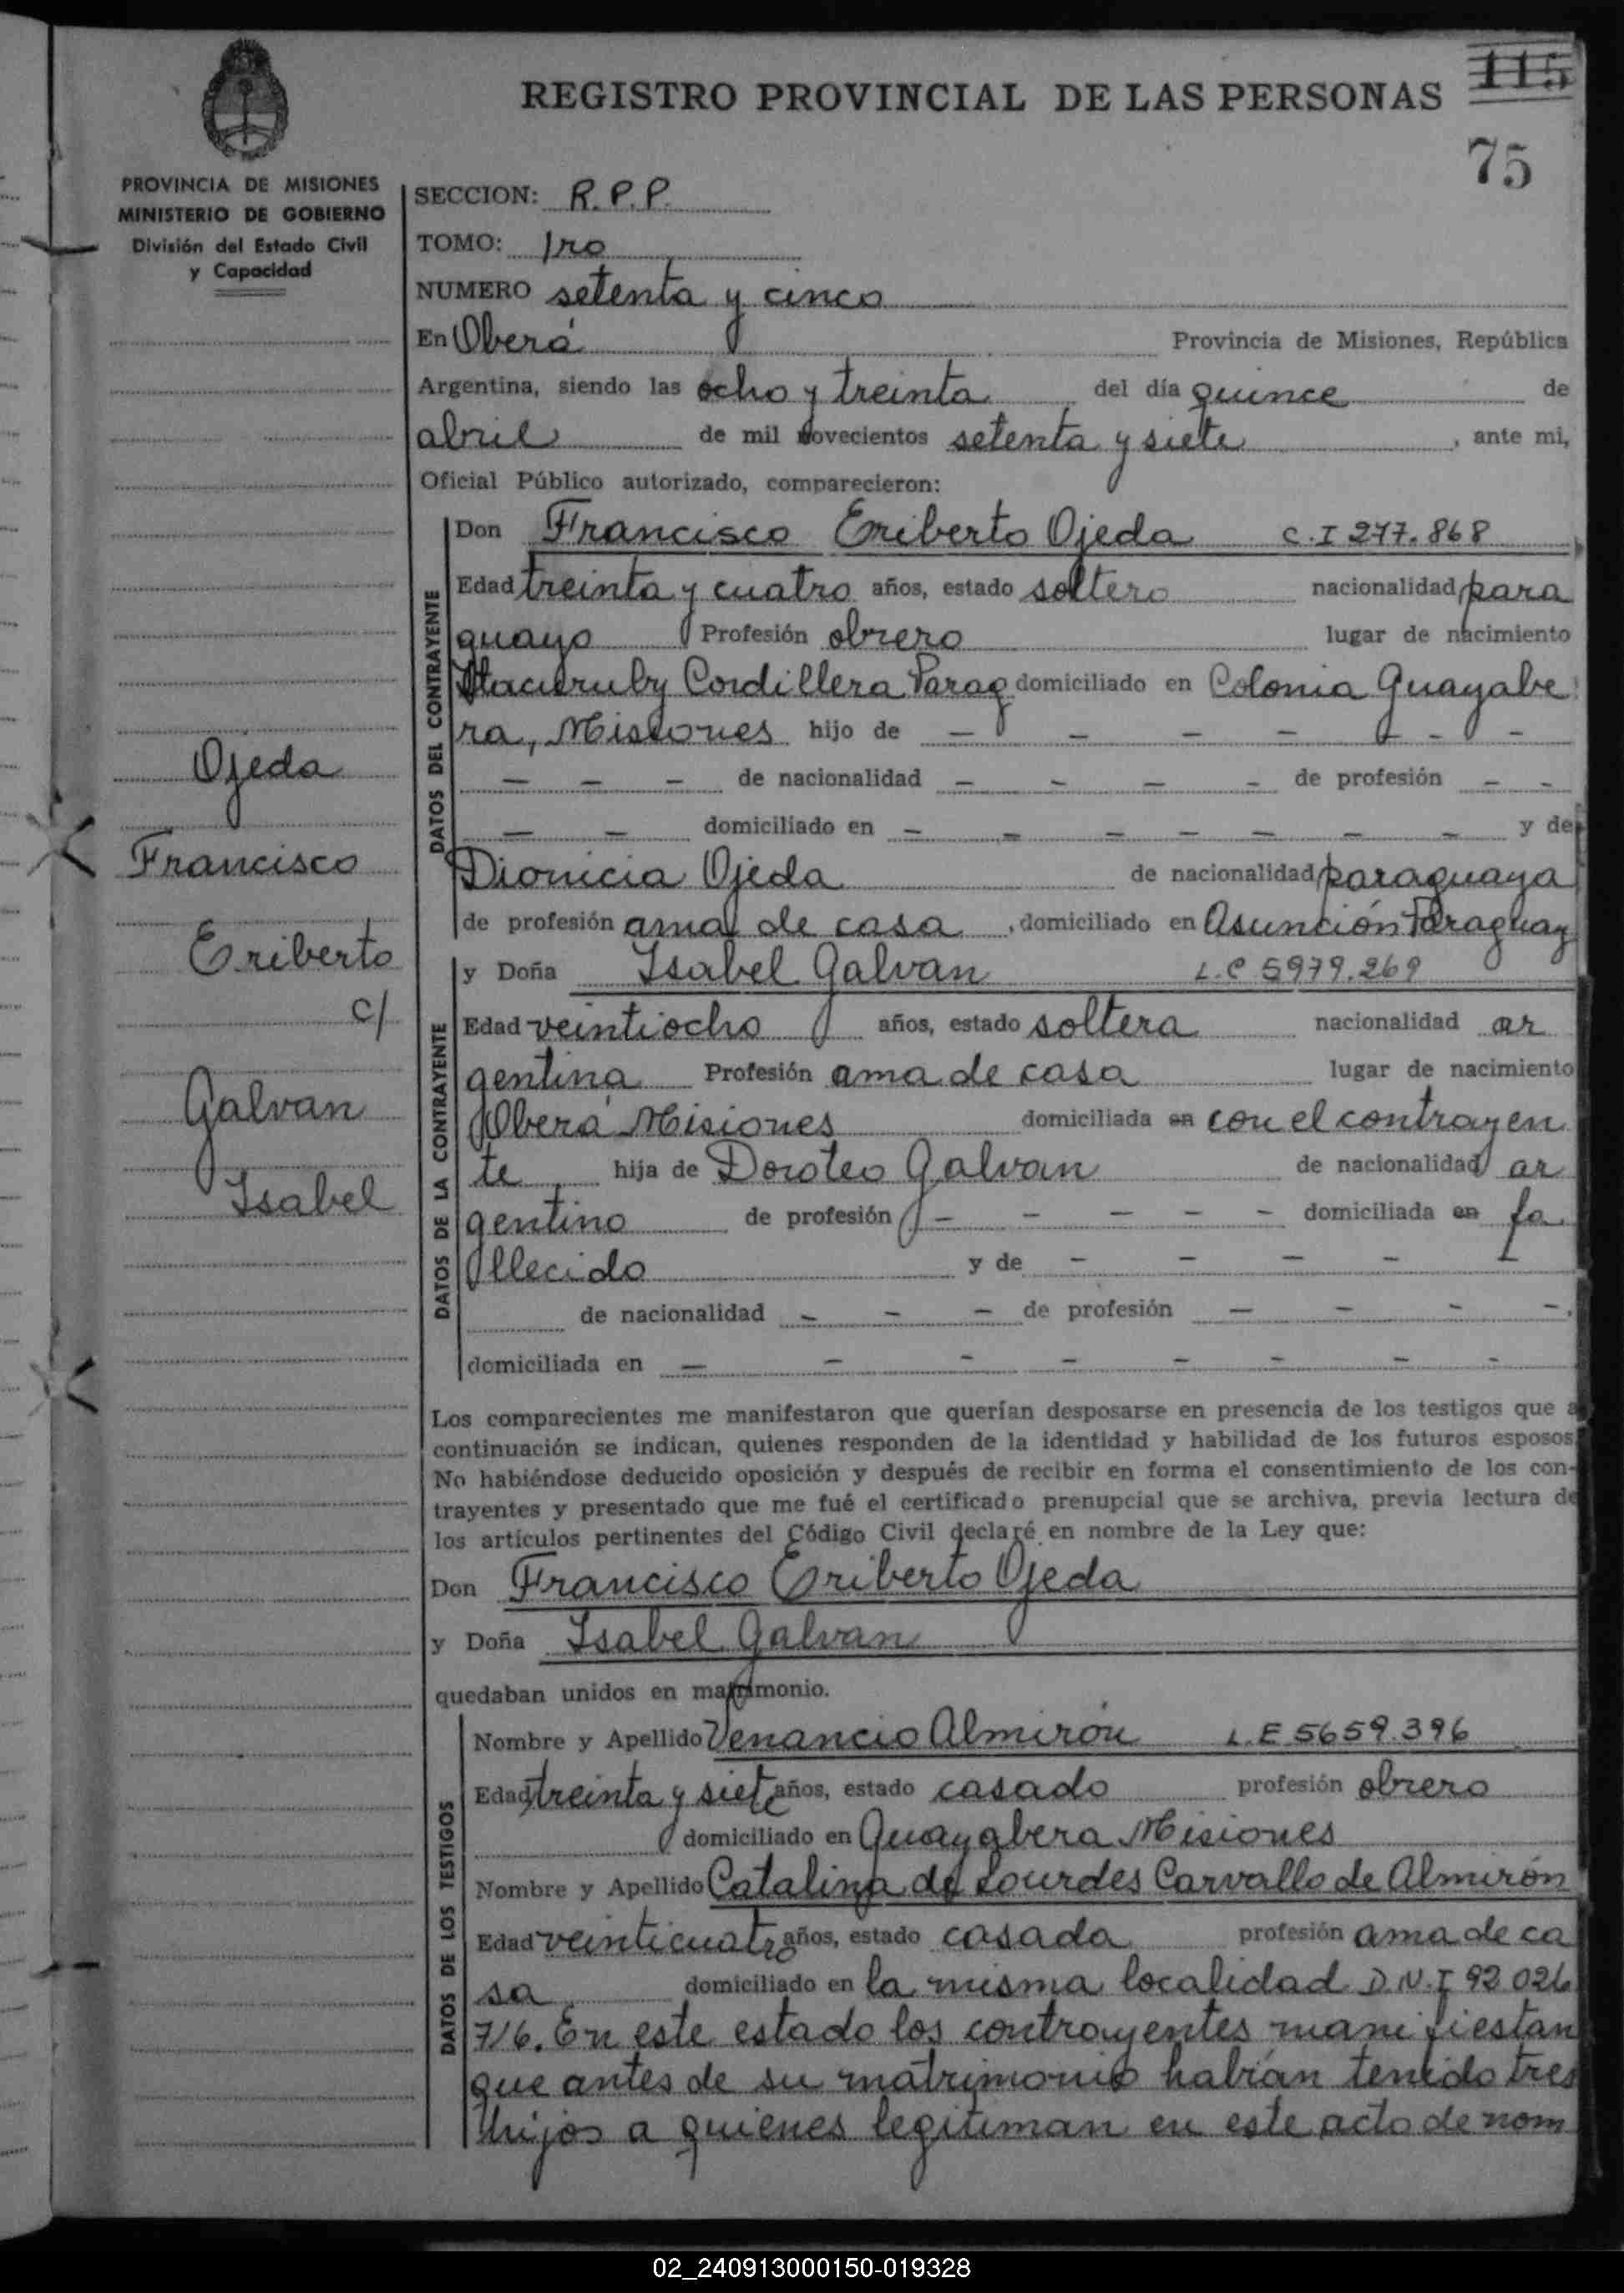 115
REGISTRO PROVINCIAL DE LAS PERSONAS
75
PROVINCIA DE MISIONES
MINISTERIO DE GOBIERNO
División del Estado Civil
y Capacidad
SECCION: R.P.P.
TOMO: 1ro
NUMERO setenta y cinco
En Oberá Provincia de Misiones, República
Argentina, siendo las ocho y treinta del día quince de
abril de mil novecientos setenta y siete, ante mi,
Oficial Público autorizado, comparecieron:
DATOS DEL CONTRAYENTE
Don Francisco Eriberto Ojeda C.I 277.868
Edad treinta y cuatro años, estado soltero nacionalidad para
guayo Profesión obrero lugar de nacimiento
Cordillera Parag domiciliado en Colonia Guayabe
ra, Misiones hijo de - - - - - - -
- - - de nacionalidad - - - - de profesión - -
- - domiciliado en - - - - - - - y de
Dionicia Ojeda de nacionalidad paraguaya
de profesión ama de casa, domiciliado en Asunción Paraguay
DATOS DE LA CONTRAYENTE
y Doña Isabel Galvan L.C 5979.269
Edad veintiocho años, estado soltera nacionalidad ar
gentina Profesión ama de casa lugar de nacimiento
Oberá Misiones domiciliada en con el contrayen
te hija de Doroteo Galvan de nacionalidad ar
gentino de profesión - - - - - domiciliada en fa
llecido y de - - - - -
de nacionalidad - - - de profesión - - - -.
domiciliada en - - - - - - - -
Ojeda
Francisco
Eriberto
c/
Galvan
Isabel
Los comparecientes me manifestaron que querían desposarse en presencia de los testigos que a
continuación se indican, quienes responden de la identidad y habilidad de los futuros esposos
No habiéndose deducido oposición y después de recibir en forma el consentimiento de los con-
trayentes y presentado que me fué el certificado prenupcial que se archiva, previa lectura de
los artículos pertinentes del Código Civil declaré en nombre de la Ley que:
Don Francisco Eriberto Ojeda
y Doña Isabel Galvan
quedaban unidos en matrimonio.
DATOS DE LOS TESTIGOS
Nombre y Apellido Venancio Almirón L.E 5659.396
Edad treinta y siete años, estado casado profesión obrero
domiciliado en Guayabera Misiones
Nombre y Apellido Catalina de Lourdes Carvallo de Almirón
Edad veinticuatro años, estado casada profesión ama de ca
sa domiciliado en la misma localidad D.N.I 92 026
716. En este estado los contrayentes manifiestan
que antes de su matrimonio habían tenido tres
hijos a quienes legitiman en este acto de nom
02_240913000150-019328